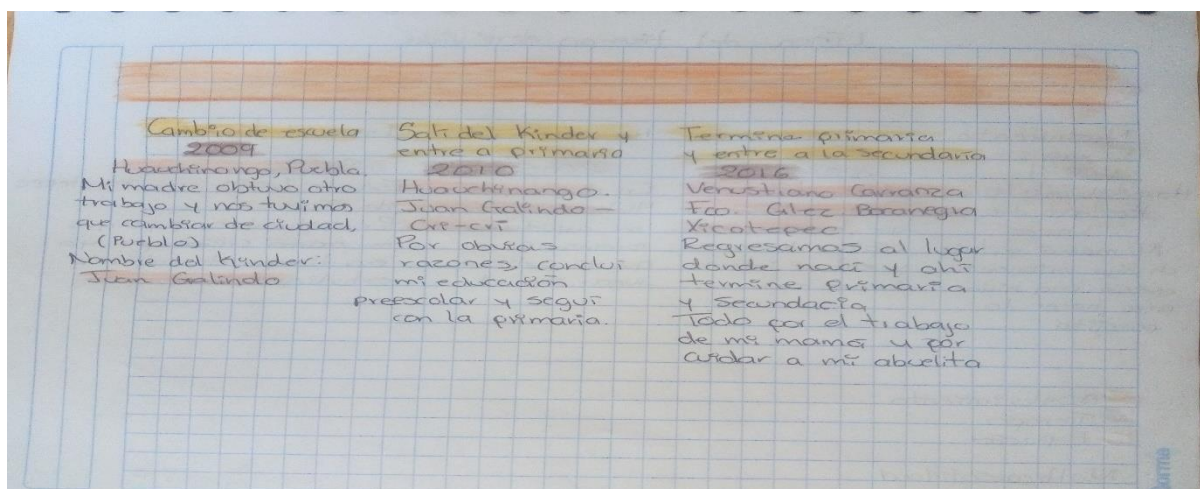 Cambio de escuela
2009
Huauchinango, Puebla.
Mi madre obtuvo otro
trabajo y nos tuvimos
que cambiar de ciudad,
(Pueblo)
Nombre del kinder:
Juan Galindo
Salí del Kinder y
entre a primaria
2010
Huauchinango.
Juan Galindo -
Cri-cri
Por obvias
razones, concluí
mi educación
preescolar y seguí
con la primaria.
Termine primaria
y entre a la secundaria
2016
Venustiano Carranza
Fco. Glez Bocanegra
Xicotepec
Regresamos al lugar
donde nací y ahí
termine primaria
y secundaria
Todo por el trabajo
de mi mamá y por
cuidar a mi abuelita